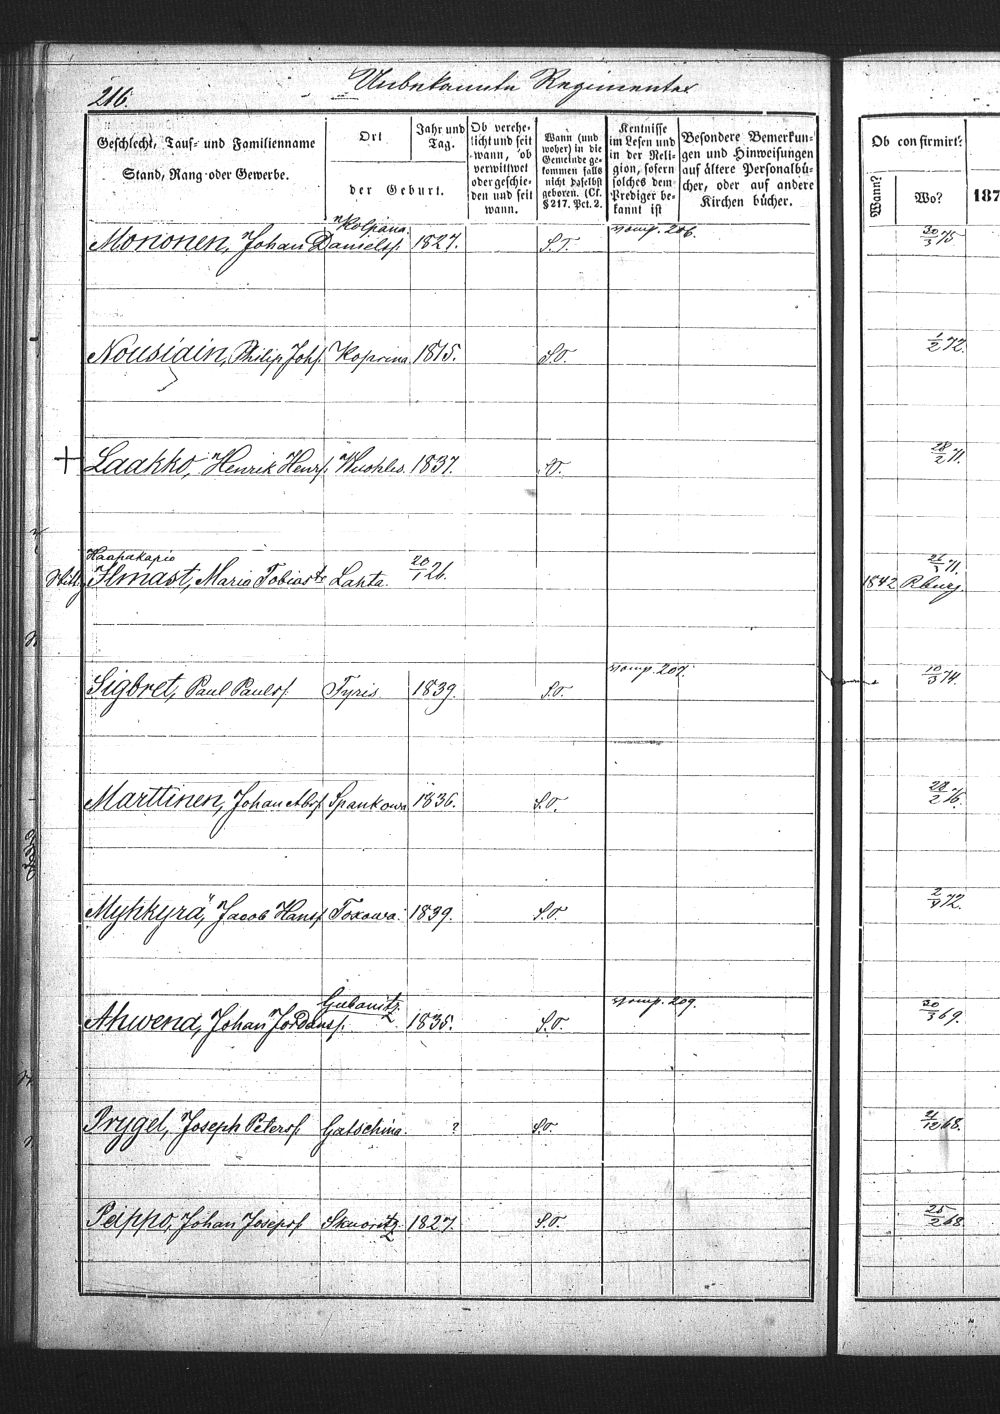 216.
Unbekannte Regimenter
Geschlecht, Tauf- und Familienname
Stand, Rang oder Gewerbe.
Ort
der Geburt.
Jahr und Tag.
Ob verehelicht und seit wann, ob verwittwet oder geschieden und seit wann.
Wann (und woher) in die Gemeinde gekommen falls nicht daselbst geboren. (Cf. § 217. Pct. 2.
Kentnisse im Lesen und in der Religion, sofern solches dem Prediger bekannt ist
Besondere Bemerkungen und Hinweisungen auf ältere Personalbücher, oder auf andere Kirchen bücher.
Ob confirmirt?
Wann?
Wo?
187
Kolpana.
Mononen, Johan Danielss. 1827. S.T. 206. 30/3 75
Nousiain, Philip Johs. Koprina 1815. S.T. 1/2 72.
Laakko, Henrik Henrs. 1837. 28/2 71.
Haapakapio
Ilmast, Maria Tobiast. Lahta. 20/1 26. 26/3 71.
1842 Rburg.
Sigbret, Paul Pauls. Tyris 1839. S.T. 207. 10/3 74.
Marttinen, Johan Abrs. Spankowa 1836. S.T. 28/2 76.
Myhkyrä, Jacob Hanss. Toxowa. 1839. S.T. 2/9 72.
Gubanitz
Ahwena, Johan Jordanss. 1835. S.T. 209. 30/3 69.
Prygel, Joseph Peterss. Gatschina. ? S.T. 68.
Peippo, Johan Josephs. Skworitz 1827. S.T. 25/2 68